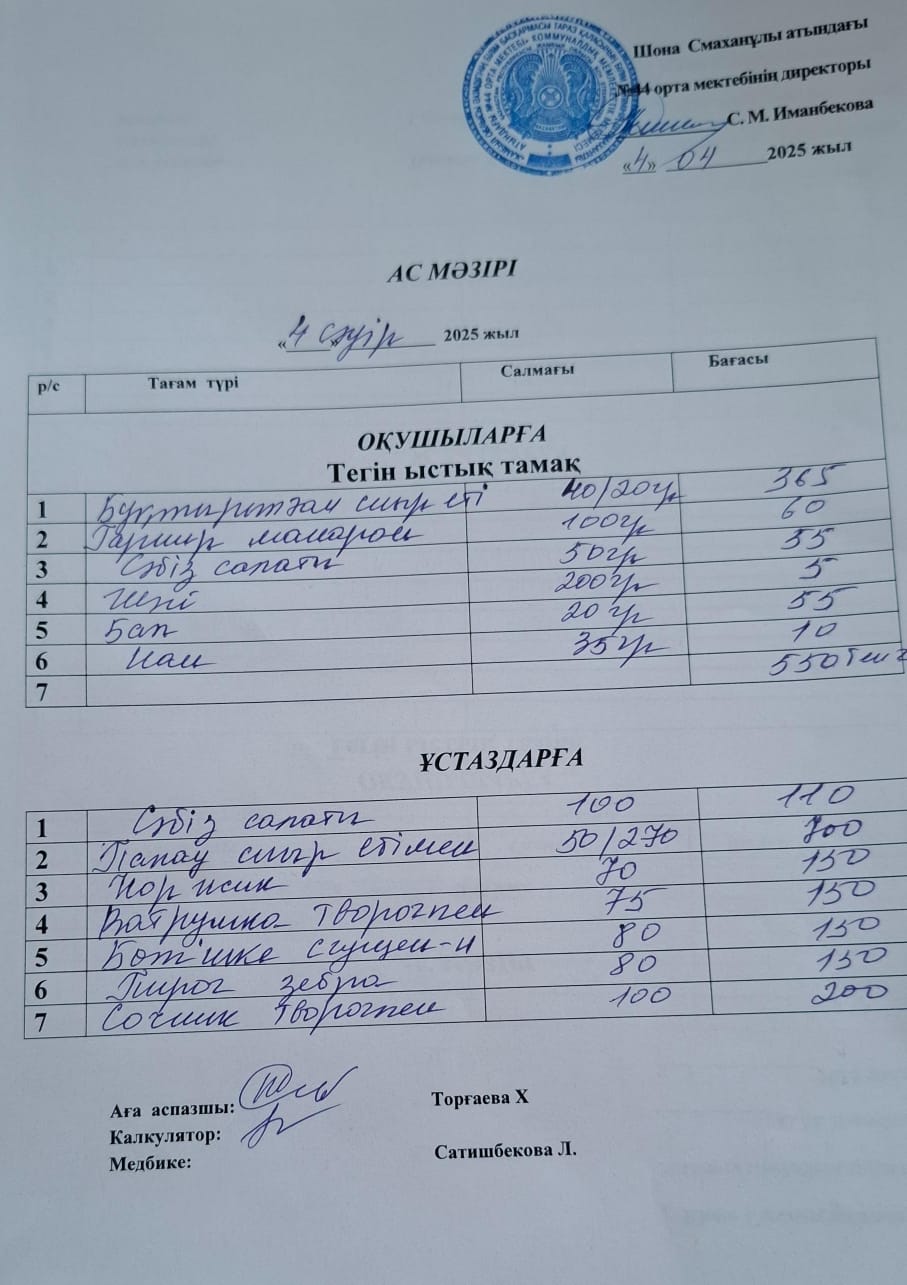 Шона Смаханұлы атындағы
№44 орта мектебінің директоры
С. М. Иманбекова
«4» 04 2025 жыл
АС МӘЗІРІ
«4» сәуір 2025 жыл
р/с Тағам түрі Салмағы Бағасы
ОҚУШЫЛАРҒА
Тегін ыстық тамақ
1 Бұқтырылған сиыр еті 40/20гр 365
2 Гарнир макарон 100гр 60
3 Сәбіз салаты 50гр 55
4 Шәй 200гр 5
5 Бал 20 гр 55
6 Нан 35гр 10
7 550 теңге
ҰСТАЗДАРҒА
1 Сәбіз салаты 100 110
2 Палау сиыр етімен 50/270 700
3 Коржик 70 150
4 Ватрушка творогпен 75 150
5 Бөтішке сгущен-н 80 150
6 Пирог зебра 80 150
7 Сочник творогпен 100 200
Аға аспазшы: Торғаева Х
Калкулятор:
Медбике: Сатишбекова Л.